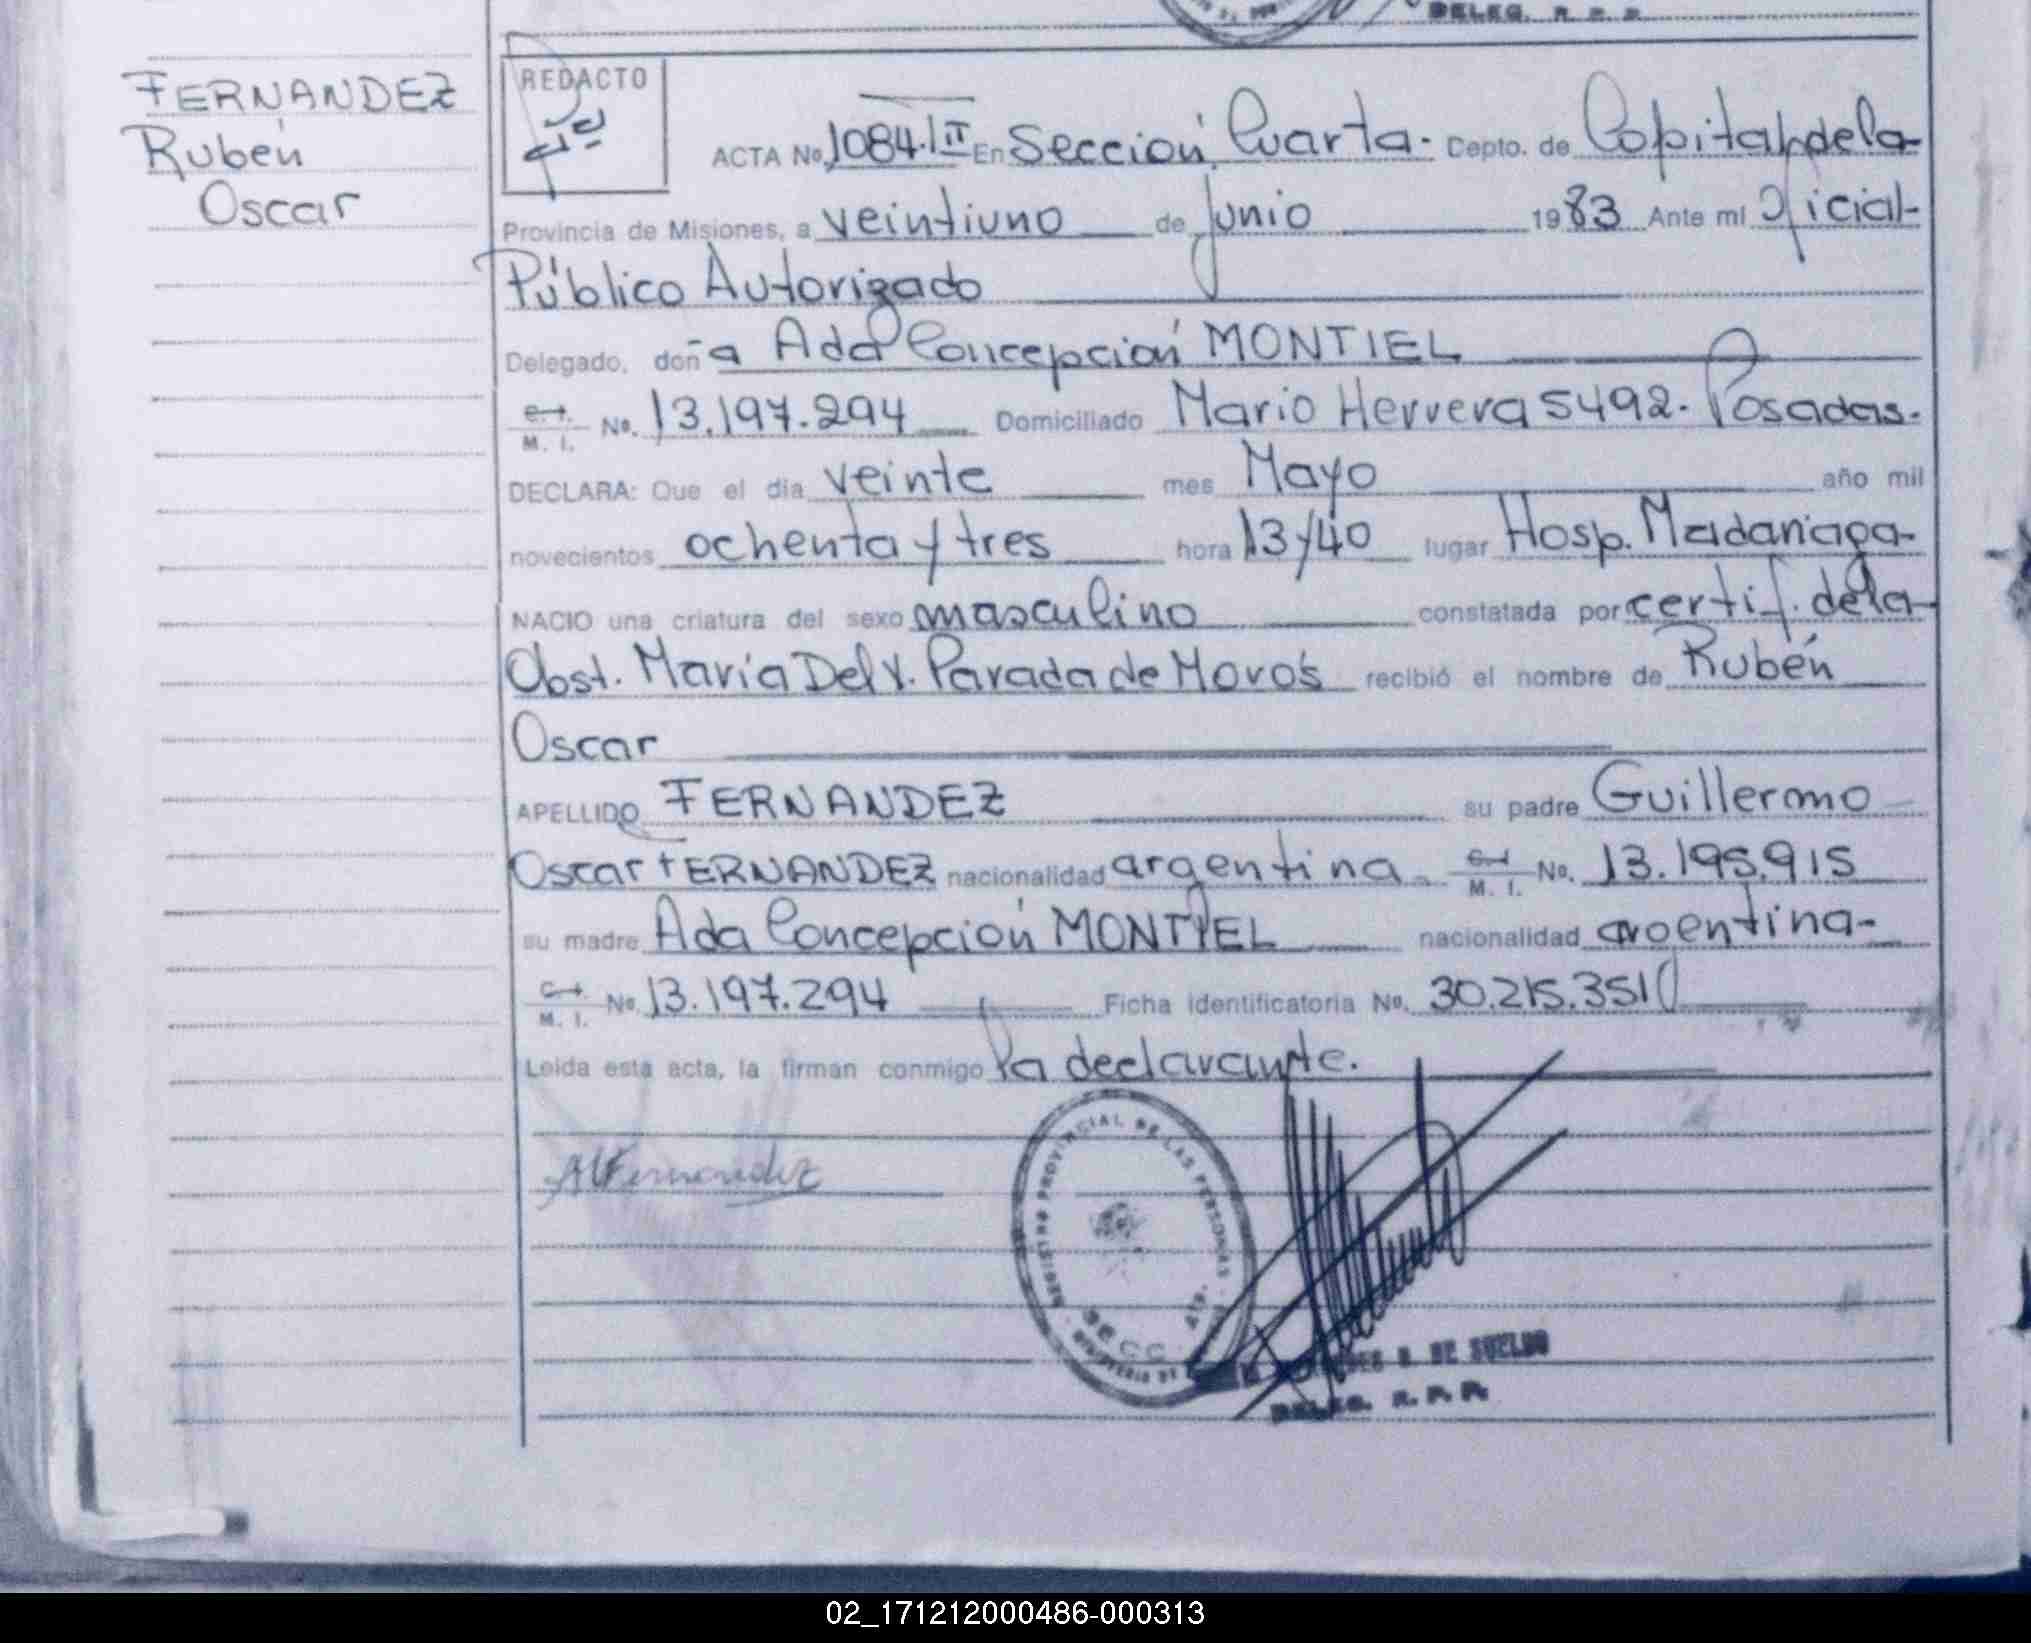 DELEG. R. P. P.
FERNANDEZ
Rubén
Oscar
REDACTO
ACTA No. 1084.II En Sección Cuarta. Depto. de Capital de la
Provincia de Misiones, a veintiuno de junio 1983 Ante mí Oficial
Público Autorizado
Delegado, doña Ada Concepción MONTIEL
C.I. M. I. No. 13.197.294 Domiciliado Mario Herrera 5492. Posadas.
DECLARA: Que el día veinte mes Mayo año mil
novecientos ochenta y tres hora 13/40 lugar Hosp. Madariaga
NACIO una criatura del sexo masculino constatada por certif. de la
Obst. María Del V. Parada de Moros recibió el nombre de Rubén
Oscar
APELLIDO FERNANDEZ su padre Guillermo
Oscar FERNANDEZ nacionalidad argentina. C.I. M. I. No. 13.195.915
su madre Ada Concepción MONTIEL nacionalidad argentina-
C.I. M. I. No. 13.197.294 Ficha identificatoria No. 30.215.351
Leída esta acta, la firman conmigo la declarante.
REGISTRO PROVINCIAL DE LAS PERSONAS
SECC. 4ta.
DE SUELDO
DELEG. R. P. P.
02_171212000486-000313